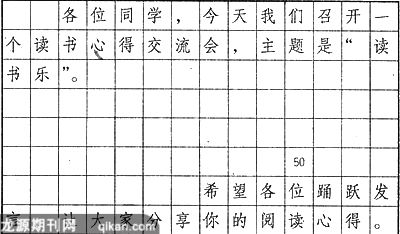 各位同学，今天我们召开一
个读书心得交流会，主题是“读
书乐”。
50
希望各位踊跃发
大家分享你的阅读心得。
龙源期刊网 qikan.com